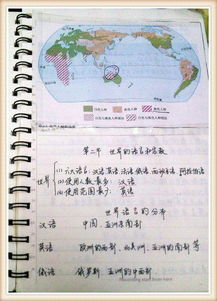 白色人种
黄色人种
黑色人种
第二节 世界的语言和宗教
世界
(1) 六大语言: 汉语 英语 法语 俄语 西班牙语 阿拉伯语
(2) 使用人数最多: 汉语
(3) 使用范围最广: 英语
世界语言的分布
汉语 中国、亚洲东南部
英语 欧洲的西部、北美洲、亚洲的南部 等
俄语 俄罗斯、亚洲的中西部